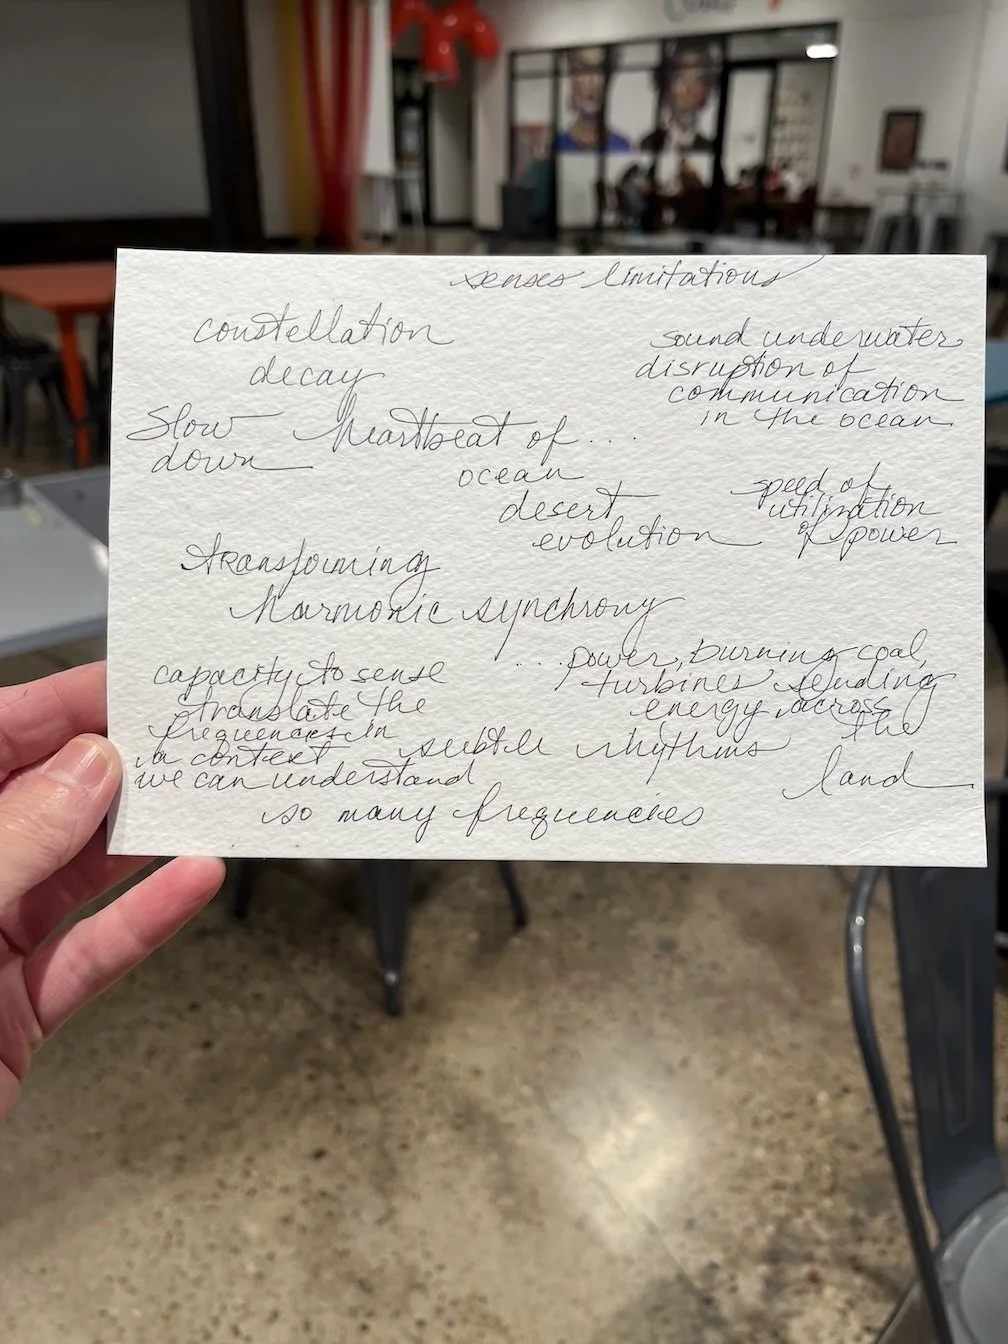 senses limitations
constellation
decay
sound underwater
disruption of
communication
in the ocean
Slow
down
heartbeat of ....
ocean
desert
evolution
speed of
utilization
of power
transforming
harmonic synchrony
capacity to sense
translate the
frequencies in
a context
we can understand
... power, burning coal,
turbines sending
energy across
the
land
subtle rhythms
so many frequencies